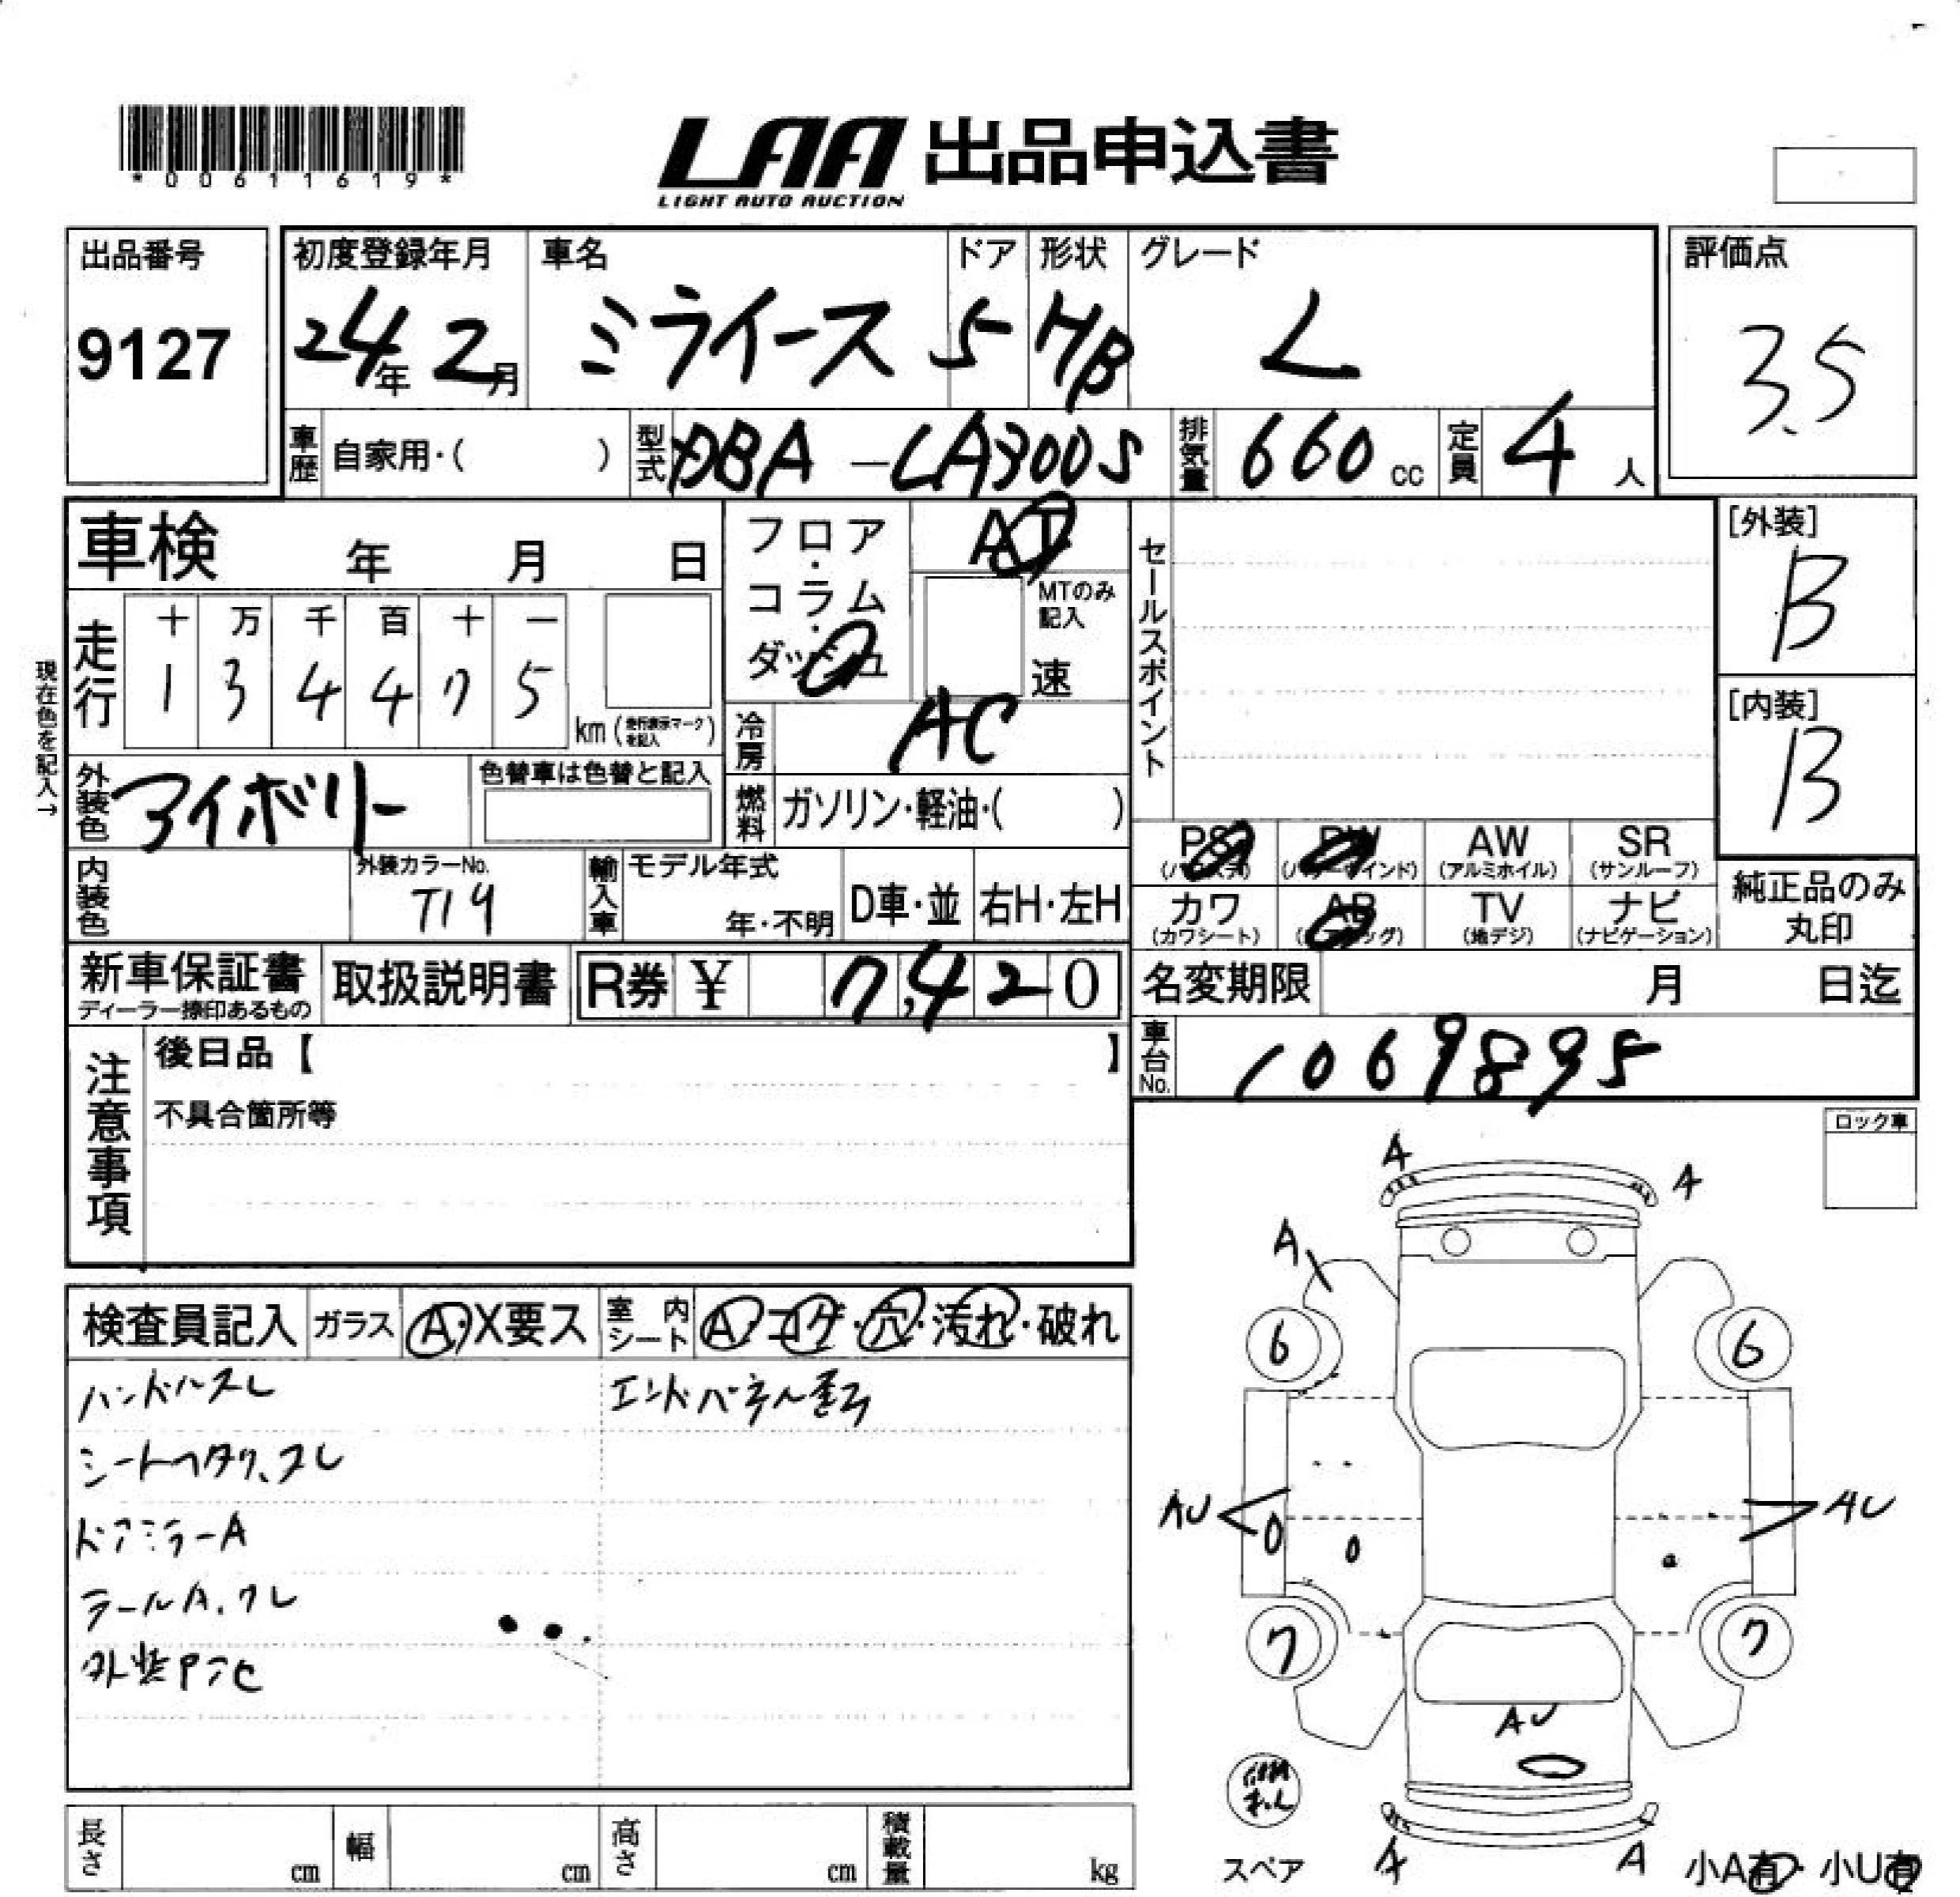 *00611619*
LAA 出品申込書
LIGHT AUTO AUCTION
出品番号 初度登録年月 車名 ドア 形状 グレード 評価点
9127 24年 2月 ミライース 5 HB L 3.5
車歴 自家用・( ) 型式 DBA-LA300S 排気量 660cc 定員 4人
車検 年 月 日 フロア・コラム・ダッシュ AT セールスポイント [外装]
B
MTのみ記入
速
走行 十 万 千 百 十 一
1 3 4 4 7 5 km (走行表示マークを記入)
[内装]
B
現在色を記入→
冷房 AC
外装色 アイボリー 色替車は色替と記入
燃料 ガソリン・軽油・( )
PS PW AW SR
(パワステ) (パワーウインド) (アルミホイル) (サンルーフ)
内装色 外装カラーNo. T19 輸入車 モデル年式 年・不明 D車・並 右H・左H
カワ AB TV ナビ
(カワシート) (エアバッグ) (地デジ) (ナビゲーション)
純正品のみ
丸印
新車保証書 取扱説明書 R券 ¥ 7,420
ディーラー捺印あるもの
名変期限 月 日迄
注意事項 後日品【 】
車台No. 1069895
不具合箇所等
ロック車
A A
A
検査員記入 ガラス A・X要ス 室内シート A・コゲ・穴・汚れ・破れ
6 6
ハンドルスレ エンドパネル歪
シートヘタリ、スレ
ドアミラーA
AU AU
テールA、ワレ
外装P
7 7
AU
スペア A A 小A有・小U有
長さ cm 幅 cm 高さ cm 積載量 kg